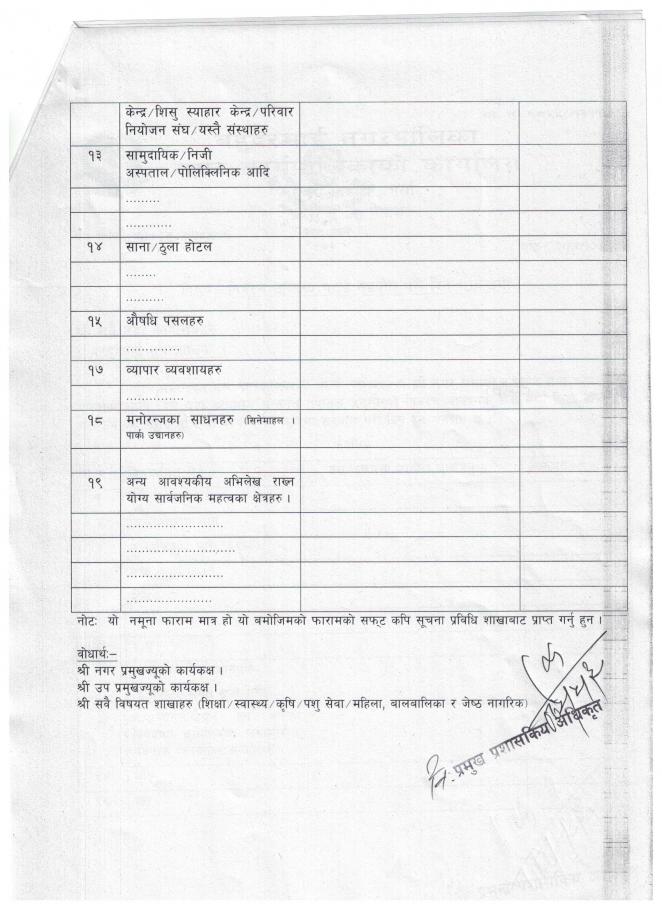 केन्द्र/शिसु स्याहार केन्द्र/परिवार
नियोजन संघ/यस्तै संस्थाहरु
१३ सामुदायिक/निजी
अस्पताल/पोलिक्लिनिक आदि
.........
............
१४ साना/ठुला होटल
........
..........
१५ औषधि पसलहरु
..............
१७ व्यापार व्यवशायहरु
...............
१८ मनोरन्जका साधनहरु (सिनेमाहल ।
पार्क। उद्यानहरु)
१९ अन्य आवश्यकीय अभिलेख राख्न
योग्य सार्वजनिक महत्वका क्षेत्रहरु ।
.........................
............................
.........................
......................
नोटः यो नमूना फाराम मात्र हो यो बमोजिमको फारामको सफ्ट कपि सूचना प्रविधि शाखाबाट प्राप्त गर्नु हुन ।
बोधार्थः–
श्री नगर प्रमुखज्यूको कार्यकक्ष ।
श्री उप प्रमुखज्यूको कार्यकक्ष ।
श्री सवै विषयत शाखाहरु (शिक्षा/स्वास्थ्य/कृषि/पशु सेवा/महिला, बालबालिका र जेष्ठ नागरिक)
नि. प्रमुख प्रशासकिय अधिकृत